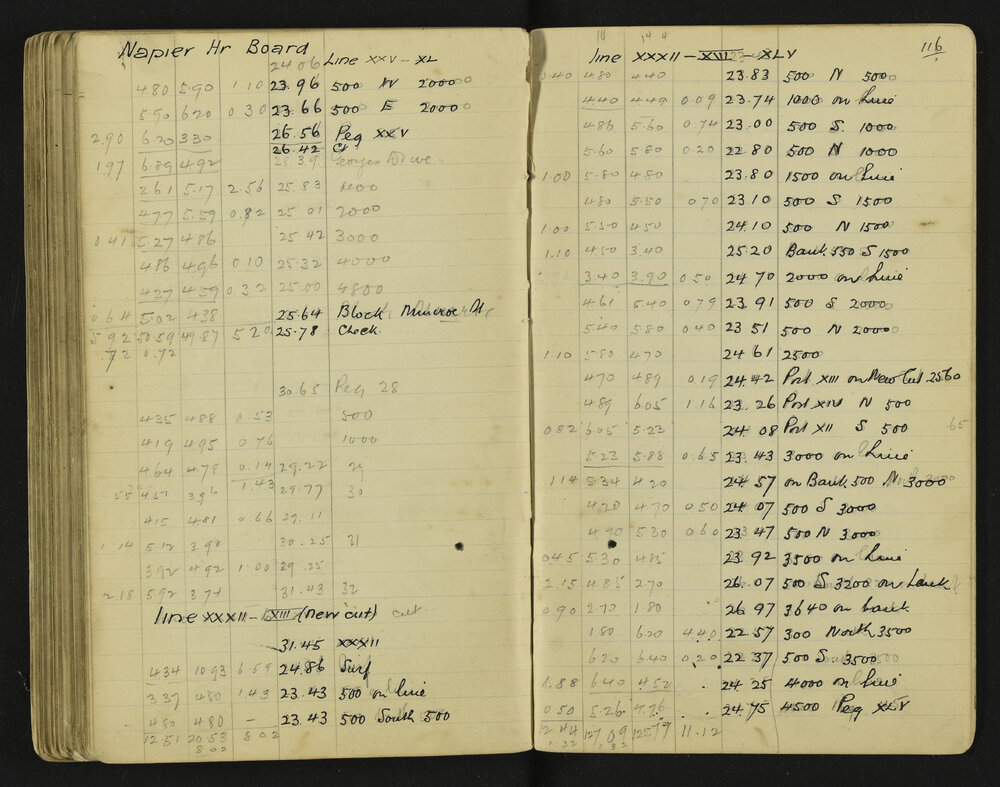 Napier Hr Board
24.06 Line XXV - XL
480 5.90 1.10 23.96 500 W 2000
5.90 620 0.30 23.66 500 E 2000
2.90 6.20 330 26.56 Peg XXV
26.42 Ct
1.97 6.89 4.92 28.39
261 5.17 2.56 25.83 1000
477 5.59 0.82 25.01 2000
0.41 5.27 486 25.42 3000
486 496 0.10 25.32 4000
427 459 0.32 25.00 4800
0.64 5.02 438 25.64 Block Munroe St
5.92 50.59 49.87 5.20 25.78 Check
.72 0.72
30.65 Peg 28
435 488 0.53 500
419 495 0.76 1000
464 478 0.14 29.22 29
1.43
.55 451 396 29.77 30
415 481 0.66 29.11
1.14 512 398 30.25 31
392 492 1.00 29.25
2.18 592 374 31.43 32
line XXXII - XIII (new cut) cut
31.45 XXXII
434 1093 6.59 24.86 Surf
337 480 143 23.43 500 on line
480 480 - 23.43 500 South 500
12.51 20.53 8.02
8.02
116
line XXXII - XIII - XLV
0.40 480 440 23.83 500 N 500
440 449 0.09 23.74 1000 on line
486 5.60 0.74 23.00 500 S. 1000
5.60 5.80 0.20 22.80 500 N 1000
1.00 5.80 480 23.80 1500 on line
480 5.50 0.70 23.10 500 S 1500
1.00 5.50 450 24.10 500 N 1500
1.10 4.50 3.40 25.20 Bank 550 S 1500
3.40 3.90 0.50 24.70 2000 on line
461 5.40 0.79 23.91 500 S 2000
5.40 5.80 0.40 23.51 500 N 2000
1.10 580 470 24.61 2500
470 489 0.19 24.42 Post XIII on New Cut 2560
489 605 1.16 23.26 Post XIV N 500
0.82 6.05 5.23 24.08 Post XII S 500 .65
5.23 5.88 0.65 23.43 3000 on line
1.14 5.34 4.20 24.57 on Bank 500 N 3000
4.20 4.70 0.50 24.07 500 S 3000
4.70 5.30 0.60 23.47 500 N 3000
0.45 5.30 485 23.92 3500 on line
2.15 4.85 2.70 26.07 500 S 3200 on bank
0.90 2.70 1.80 26.97 3640 on bank
1.80 6.20 4.40 22.57 300 North 3500
620 6.40 0.20 22.37 500 S 3500
1.88 6.40 4.52 24.25 4000 on line
0.50 5.26 4.76 24.75 4500 Peg XLV
12.44 127.09 125.77 11.12
1.32 1.32